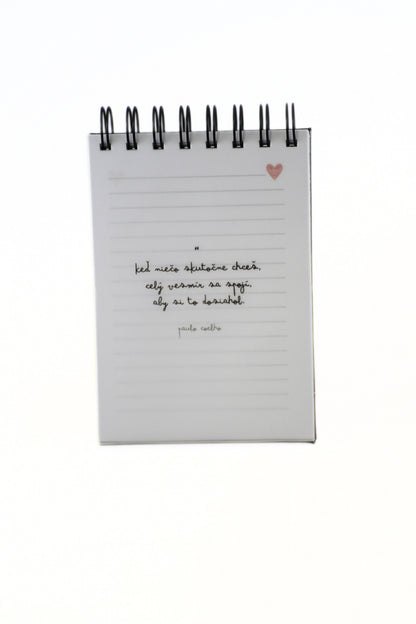 "
keď niečo skutočne chceš,
celý vesmír sa spojí,
aby si to dosiahol.
paulo coelho